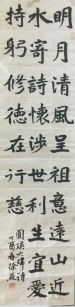 明月清風呈祖意遠山近
水寄詩懷涉世利生宜愛
持躬修德在行慈
圓瑛大師詩
丁酉春徐